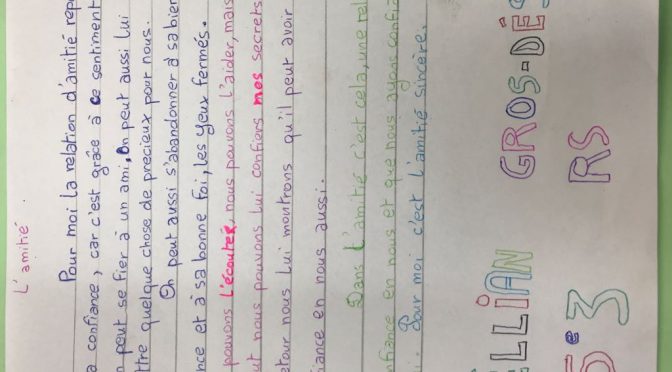 L'amitié
Pour moi la relation d'amitié
confiance, car c'est grâce à ce sentiment
peut se fier à un ami, on peut aussi lui
quelque chose de precieux pour nous.
On peut aussi s'abandonner à sa bien
et à sa bonne foi, les yeux fermés.
pouvons l'écouter, nous pouvons l'aider, mais
nous pouvons lui confiers mes secrets
nous lui montrons qu'il peut avoir
en nous aussi.
Dans l'amitié c'est cela, une
en nous et que nous ayons
Pour moi c'est l'amitié sincère.
LLIAN GROS-DÉS
5e3 RS